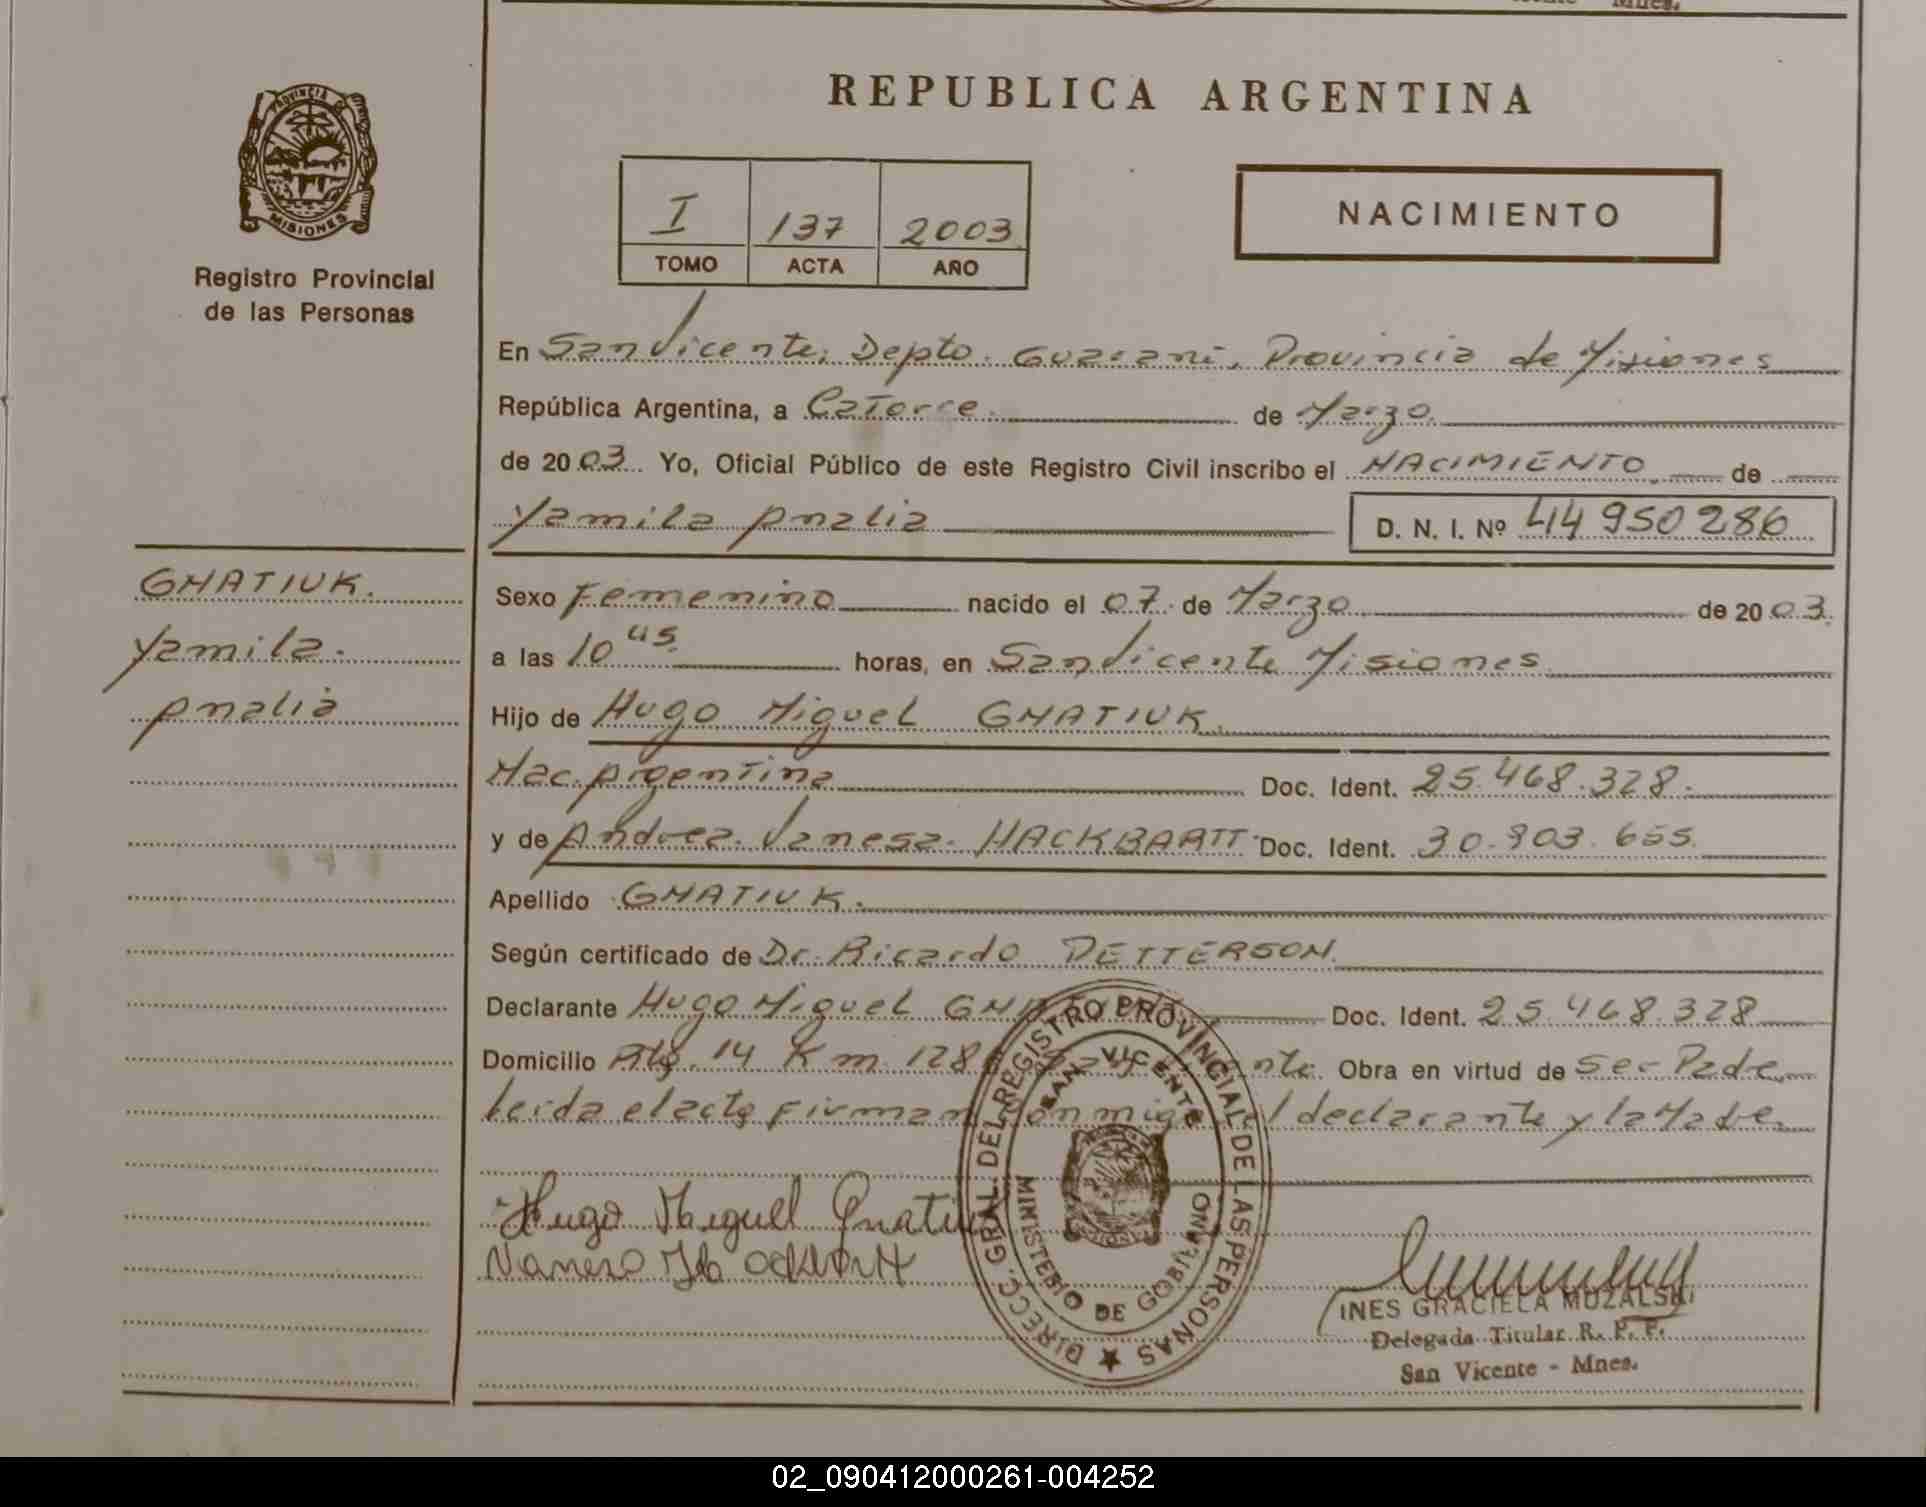 Vicente Mnes.
PROVINCIA DE
MISIONES
Registro Provincial
de las Personas
REPUBLICA ARGENTINA
I 137 2003
TOMO ACTA AÑO
NACIMIENTO
En San Vicente, Depto. Guarani, Provincia de Misiones
República Argentina, a Catorce de Marzo
de 2003 Yo, Oficial Público de este Registro Civil inscribo el NACIMIENTO de
Yamila Analia D. N. I. Nº 44950286
GNATIUK.
Yamila.
Analia
Sexo Femenino nacido el 07 de Marzo de 2003.
a las 10 45 horas, en San Vicente Misiones
Hijo de Hugo Miguel GNATIUK.
Nac. Argentina Doc. Ident. 25.468.328.
y de Andrea. Vanesa. HACKBARTT Doc. Ident. 30.903.655.
Apellido GNATIUK.
Según certificado de Dr. Ricardo PETTERSON.
Declarante Hugo Miguel Doc. Ident. 25.468.328
Domicilio 14 Km. 128 Obra en virtud de ser Padre
Leida el acta firman conmigo el declarante y la Madre
Hugo Miguel Gnatiuk
DIRECC. GRAL. DEL REGISTRO PROVINCIAL DE LAS PERSONAS
SAN VICENTE
MINISTERIO DE GOBIERNO
INES GRACIELA MUZALSKI
Delegada Titular R. P. P.
San Vicente - Mnes.
02_090412000261-004252